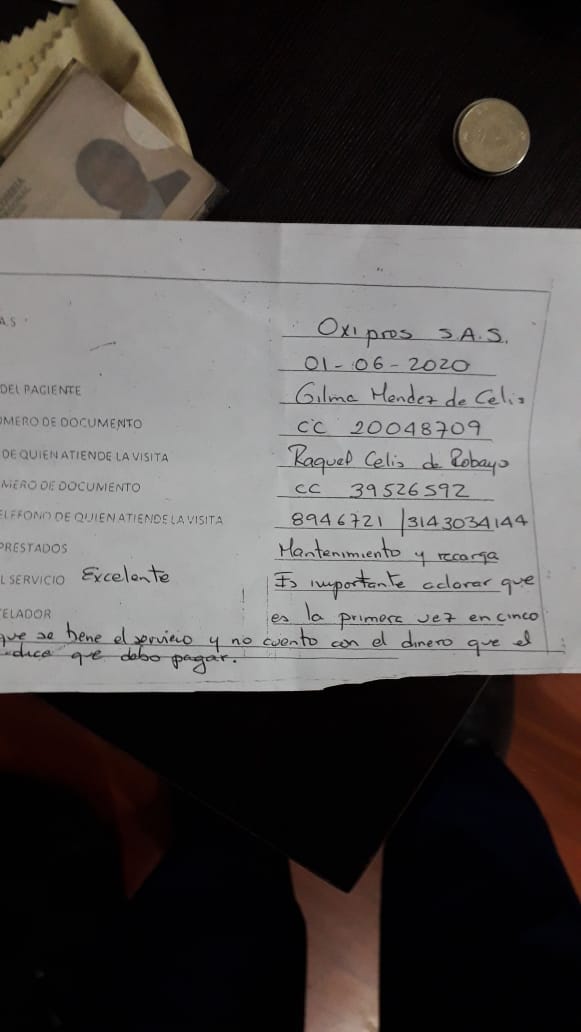 A.S Oxipros S.A.S.
01-06-2020
DEL PACIENTE Gilma Mendez de Celis
MERO DE DOCUMENTO CC 20048709
DE QUIEN ATIENDE LA VISITA Raquel Celis de Robayo
MERO DE DOCUMENTO CC 39526592
ELEFONO DE QUIEN ATIENDE LA VISITA 8946721 / 3143034144
PRESTADOS Mantenimiento y recarga
L SERVICIO Excelente Es importante aclarar que
ELADOR es la primera vez en cinco
que se tiene el servicio y no cuento con el dinero que el
que debo pagar.